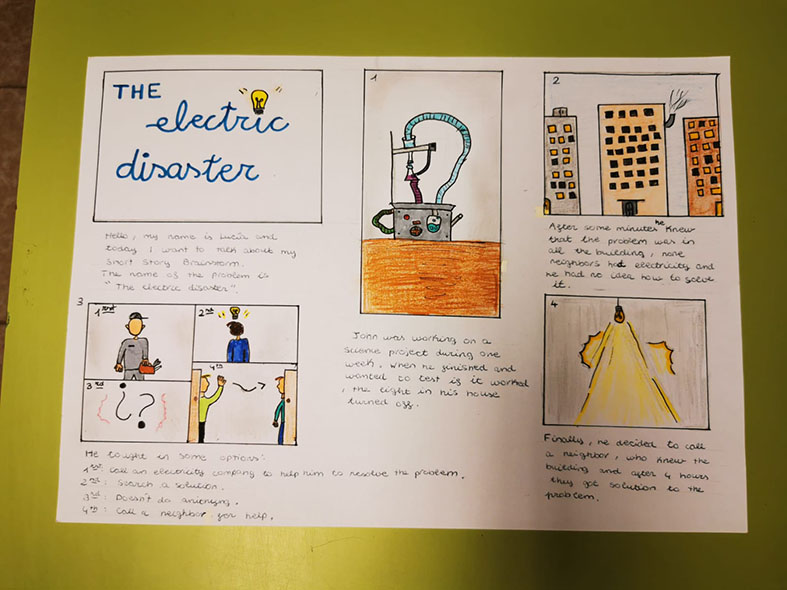 THE
electric
disaster
Hello, my name is Lucía and
today I want to talk about my
Short Story Brainstorm.
The name of the problem is
"The electric disaster".
1
John was working on a
science project during one
week, when he finished and
wanted to test if it worked
, the light in his house
turned off.
2
After some minutes he knew
that the problem was in
all the building, none
neighbors had electricity and
he had no idea how to solve
it.
3
1rst
2nd
3rd
4th
¿?
He tought in some options:
1rst: Call an electricity company to help him to resolve the problem.
2nd: Search a solution.
3rd: Doesn't do anything.
4th: Call a neighbor for help.
4
Finally, he decided to call
a neighbor, who knew the
building and after 4 hours
they got solution to the
problem.